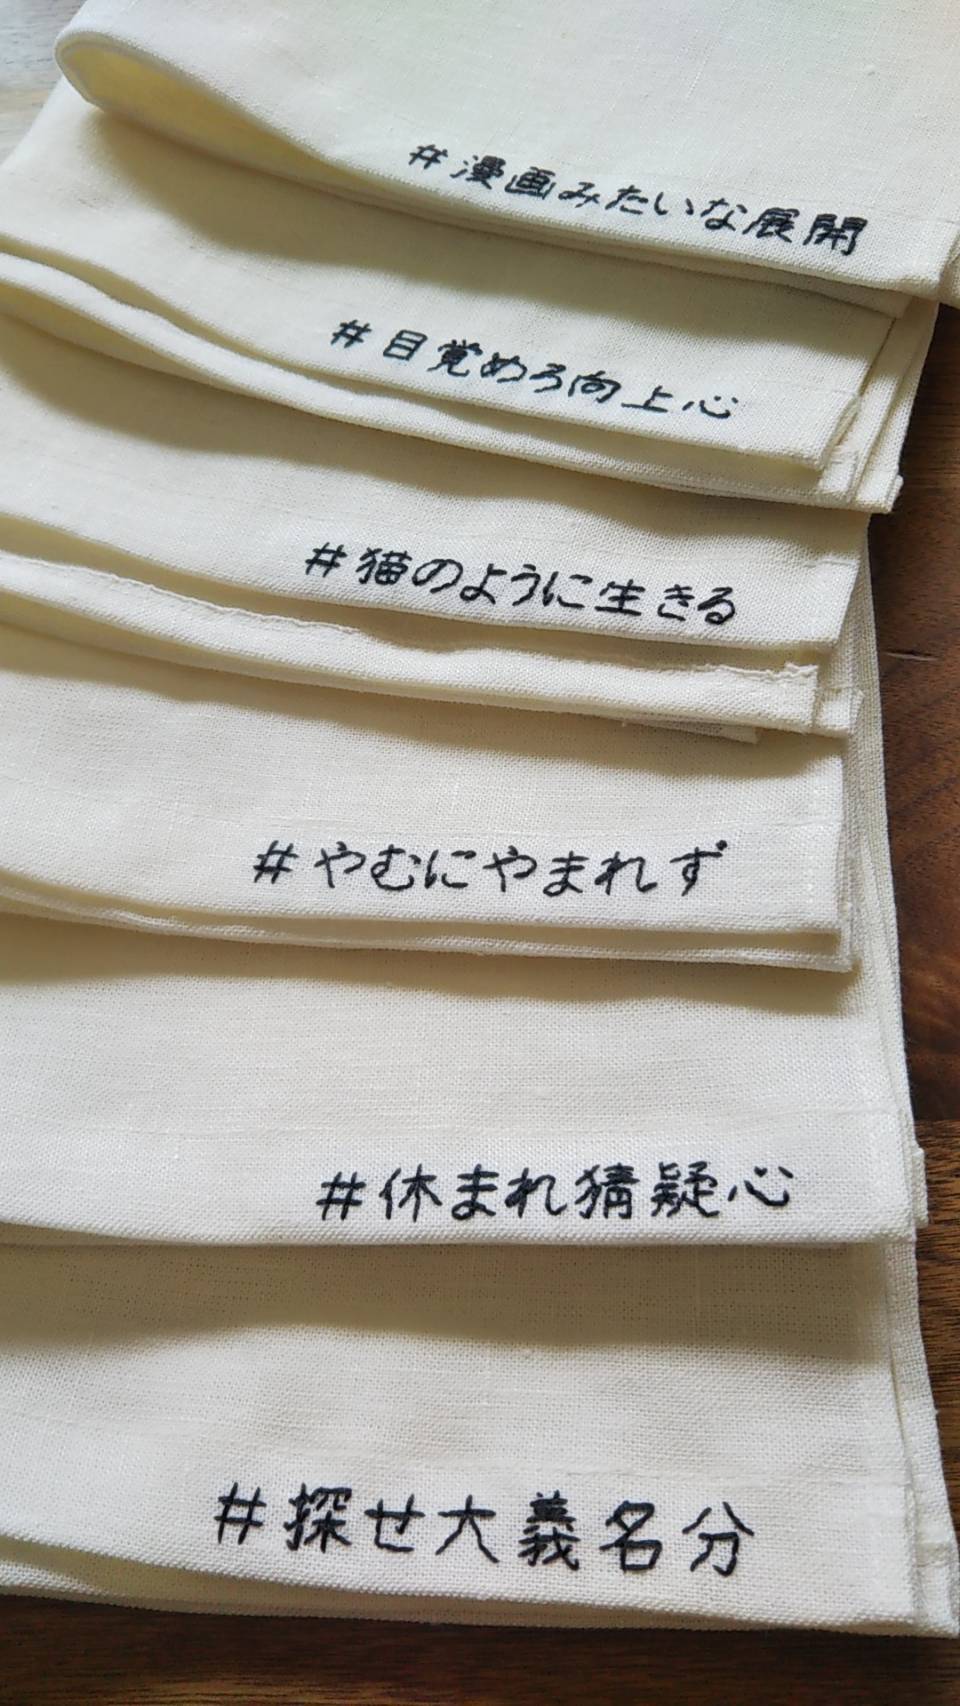 #漫画みたいな展開
#目覚めろ向上心
#猫のように生きる
#やむにやまれず
#休まれ猜疑心
#探せ大義名分